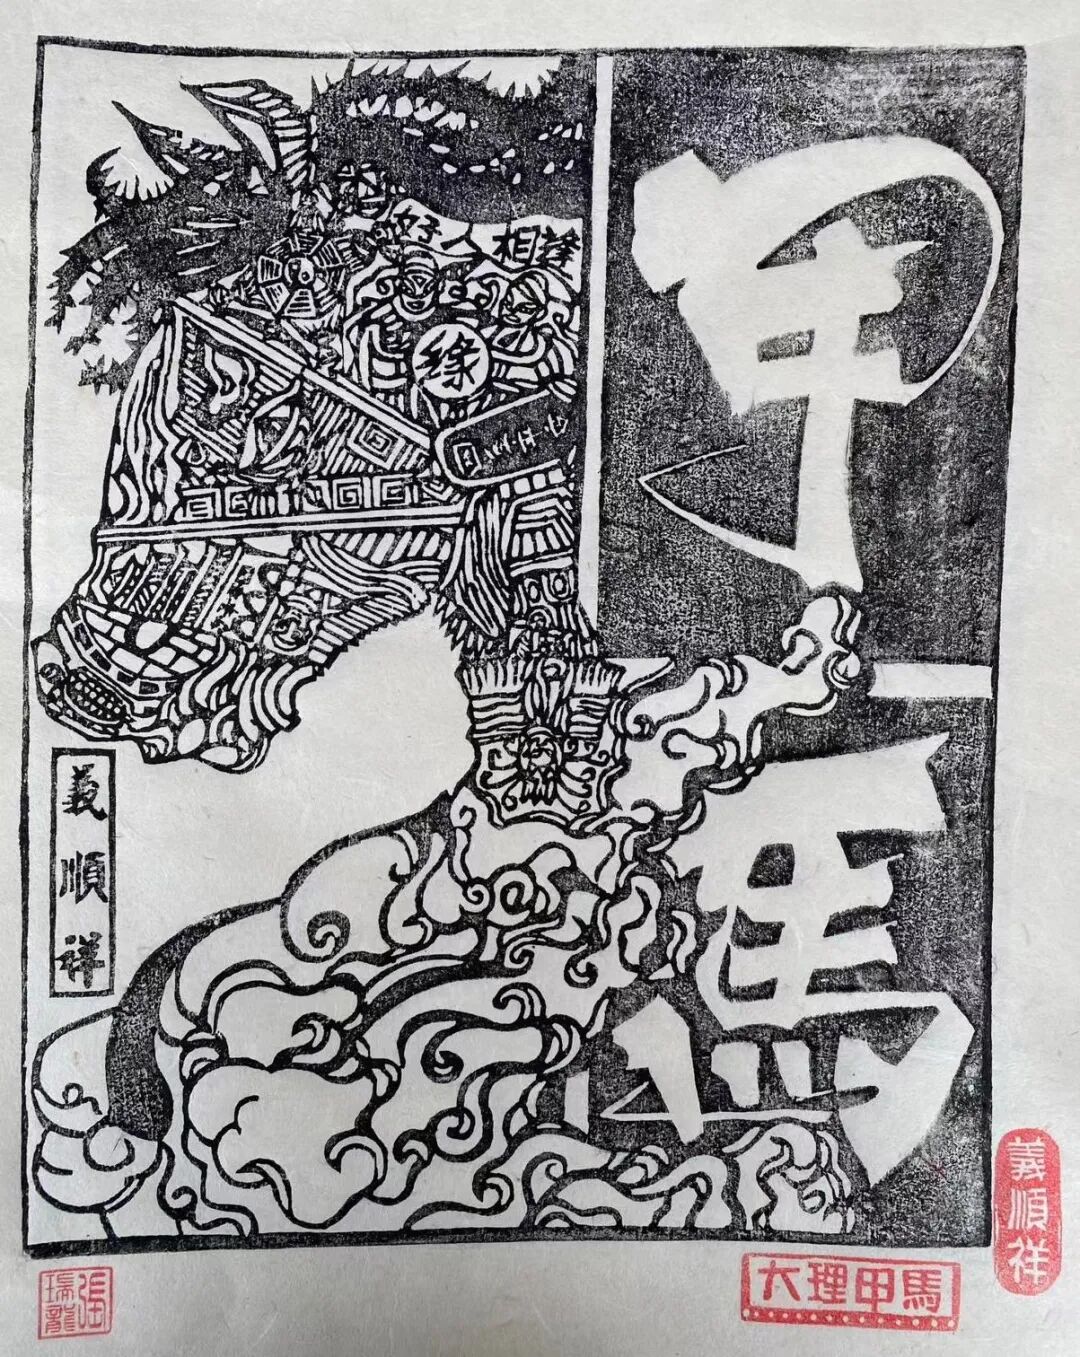 甲馬
好人相逢
缘
義順祥
義順祥
大理甲馬
張瑞龍